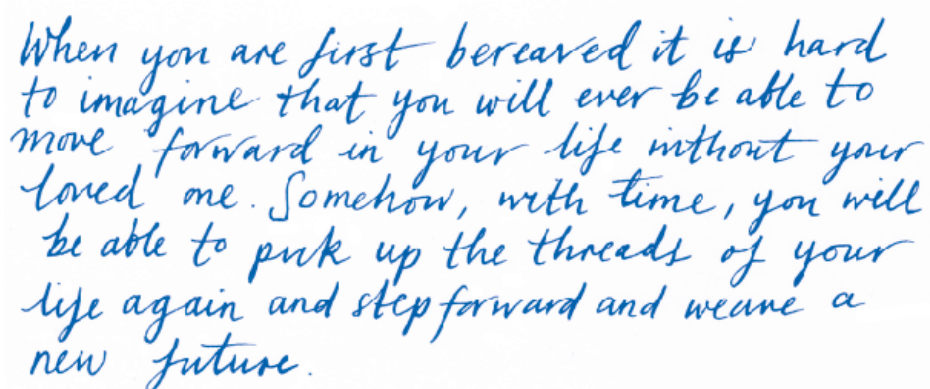 When you are first bereaved it is hard
to imagine that you will ever be able to
move forward in your life without your
loved one. Somehow, with time, you will
be able to pick up the threads of your
life again and step forward and weave a
new future.